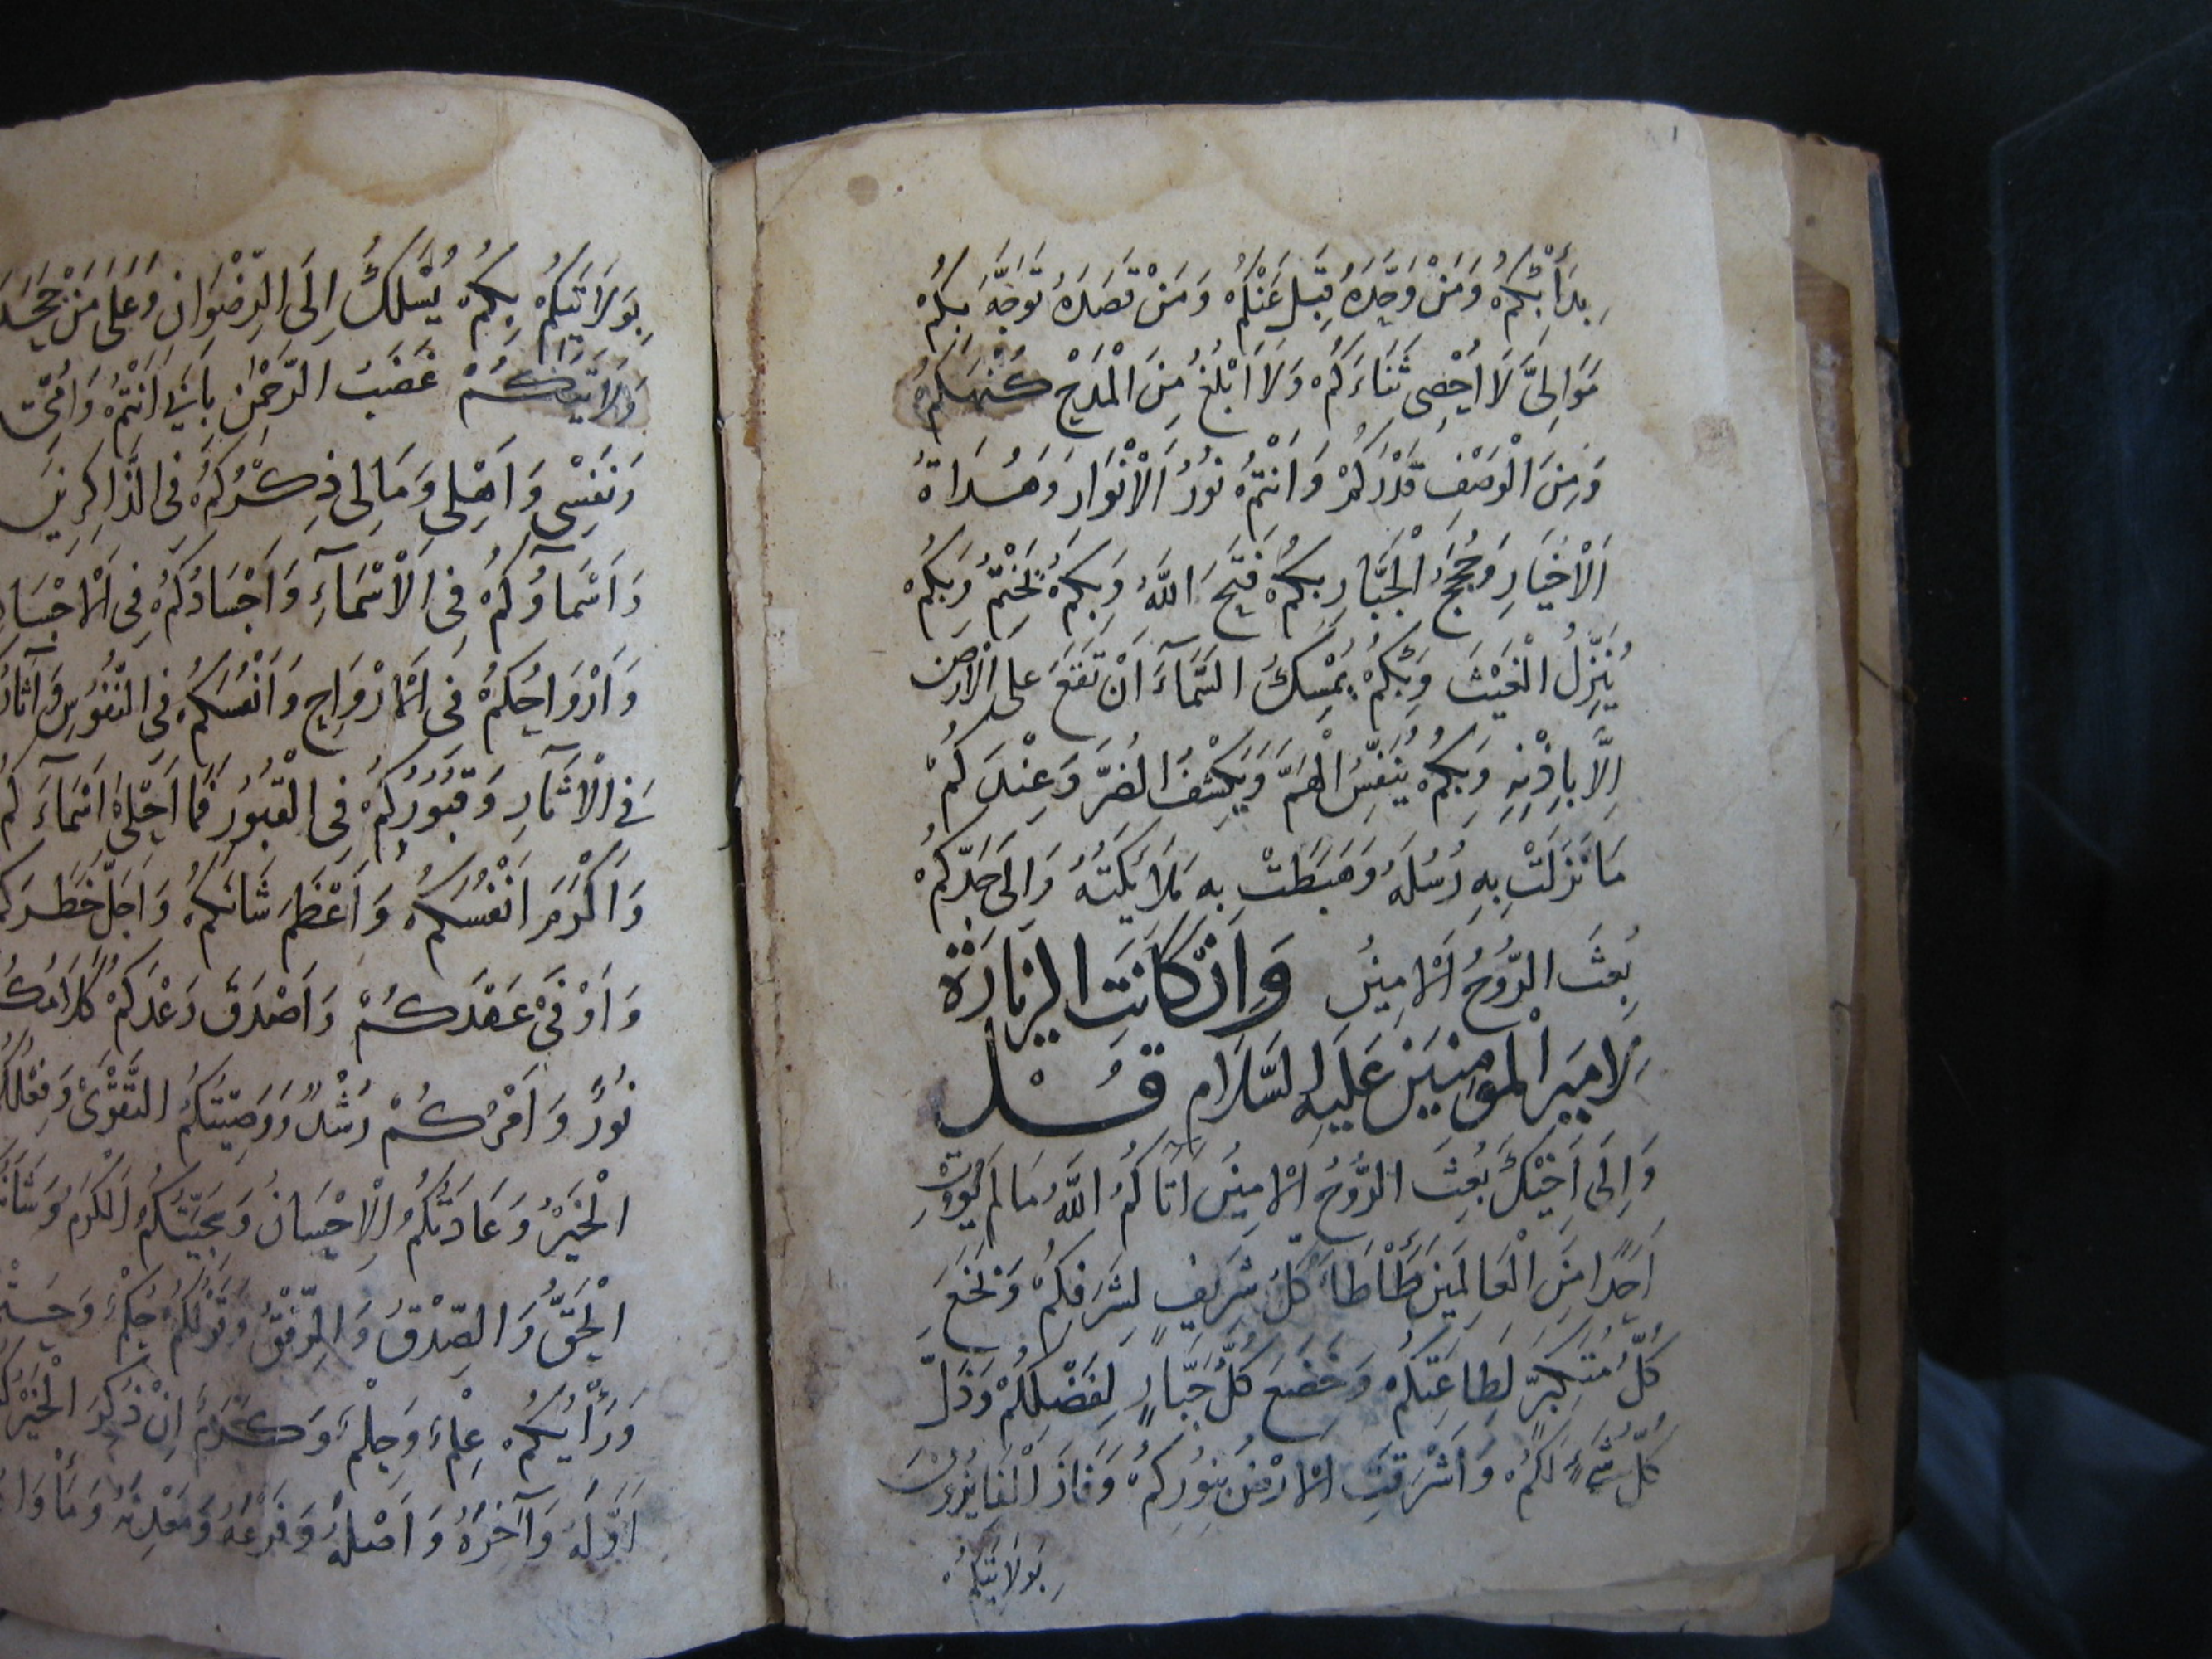 بَدَأَ بِكُمْ وَمَنْ وَحَّدَهُ قَبِلَ عَنْكُمْ وَمَنْ قَصَدَهُ تَوَجَّهَ بِكُمْ
مَوَالِيَّ لَا أُحْصِي ثَنَاءَكُمْ وَلَا أَبْلُغُ مِنَ الْمَدْحِ كُنْهَكُمْ
وَمِنَ الْوَصْفِ قَدْرَكُمْ وَأَنْتُمْ نُورُ الْأَنْوَارِ وَهُدَاةُ
الْأَخْيَارِ وَحُجَجُ الْجَبَّارِ بِكُمْ فَتَحَ اللَّهُ وَبِكُمْ يَخْتِمُ وَبِكُمْ
يُنَزِّلُ الْغَيْثَ وَبِكُمْ يُمْسِكُ السَّمَآءَ أَنْ تَقَعَ عَلَى الْأَرْضِ
إِلَّا بِإِذْنِهِ وَبِكُمْ يُنَفِّسُ الْهَمَّ وَيَكْشِفُ الضُّرَّ وَعِنْدَكُمْ
مَا نَزَلَتْ بِهِ رُسُلُهُ وَهَبَطَتْ بِهِ مَلَائِكَتُهُ وَإِلَى جَدِّكُمْ
بُعِثَ الرُّوحُ الْأَمِينُ وَإِنْ كَانَتِ الزِّيَارَةُ
لِأَمِيرِ الْمُؤْمِنِينَ عَلَيْهِ السَّلَامُ قُلْ
وَإِلَى أَخِيكَ بُعِثَ الرُّوحُ الْأَمِينُ آتَاكُمُ اللَّهُ مَا لَمْ يُؤْتِ
أَحَدًا مِنَ الْعَالَمِينَ طَأْطَأَ كُلُّ شَرِيفٍ لِشَرَفِكُمْ وَنَخَعَ
كُلُّ مُتَكَبِّرٍ لِطَاعَتِكُمْ وَخَضَعَ كُلُّ جَبَّارٍ لِفَضْلِكُمْ وَذَلَّ
كُلُّ شَيْءٍ لَكُمْ وَأَشْرَقَتِ الْأَرْضُ بِنُورِكُمْ وَفَازَ الْفَايِزُونَ
بِوَلَايَتِكُمْ
بِوَلَايَتِكُمْ بِكُمْ يُسْلَكُ إِلَى الرِّضْوَانِ وَعَلَى مَنْ جَحَدَ
وَلَايَتَكُمْ غَضَبُ الرَّحْمٰنِ بِأَبِي أَنْتُمْ وَأُمِّي
وَنَفْسِي وَأَهْلِي وَمَالِي ذِكْرُكُمْ فِي الذَّاكِرِينَ
وَأَسْمَاؤُكُمْ فِي الْأَسْمَآءِ وَأَجْسَادُكُمْ فِي الْأَجْسَادِ
وَأَرْوَاحُكُمْ فِي الْأَرْوَاحِ وَأَنْفُسُكُمْ فِي النُّفُوسِ وَآثَارُ
فِي الْآثَارِ وَقُبُورُكُمْ فِي الْقُبُورِ فَمَا أَحْلَى أَسْمَآءَكُمْ
وَأَكْرَمَ أَنْفُسَكُمْ وَأَعْظَمَ شَانَكُمْ وَأَجَلَّ خَطَرَكُمْ
وَأَوْفَى عَهْدَكُمْ وَأَصْدَقَ وَعْدَكُمْ كَلَامُكُمْ
نُورٌ وَأَمْرُكُمْ رُشْدٌ وَوَصِيَّتُكُمُ التَّقْوَى وَفِعْلُكُمُ
الْخَيْرُ وَعَادَتُكُمُ الْإِحْسَانُ وَسَجِيَّتُكُمُ الْكَرَمُ وَشَأْنُكُمُ
الْحَقُّ وَالصِّدْقُ وَالرِّفْقُ وَقَوْلُكُمْ حُكْمٌ وَحَتْمٌ
وَرَأْيُكُمْ عِلْمٌ وَحِلْمٌ وَكَرَمٌ إِنْ ذُكِرَ الْخَيْرُ
أَوَّلَهُ وَآخِرَهُ وَأَصْلَهُ وَفَرْعَهُ وَمَعْدِنَهُ وَمَأْوَاهُ